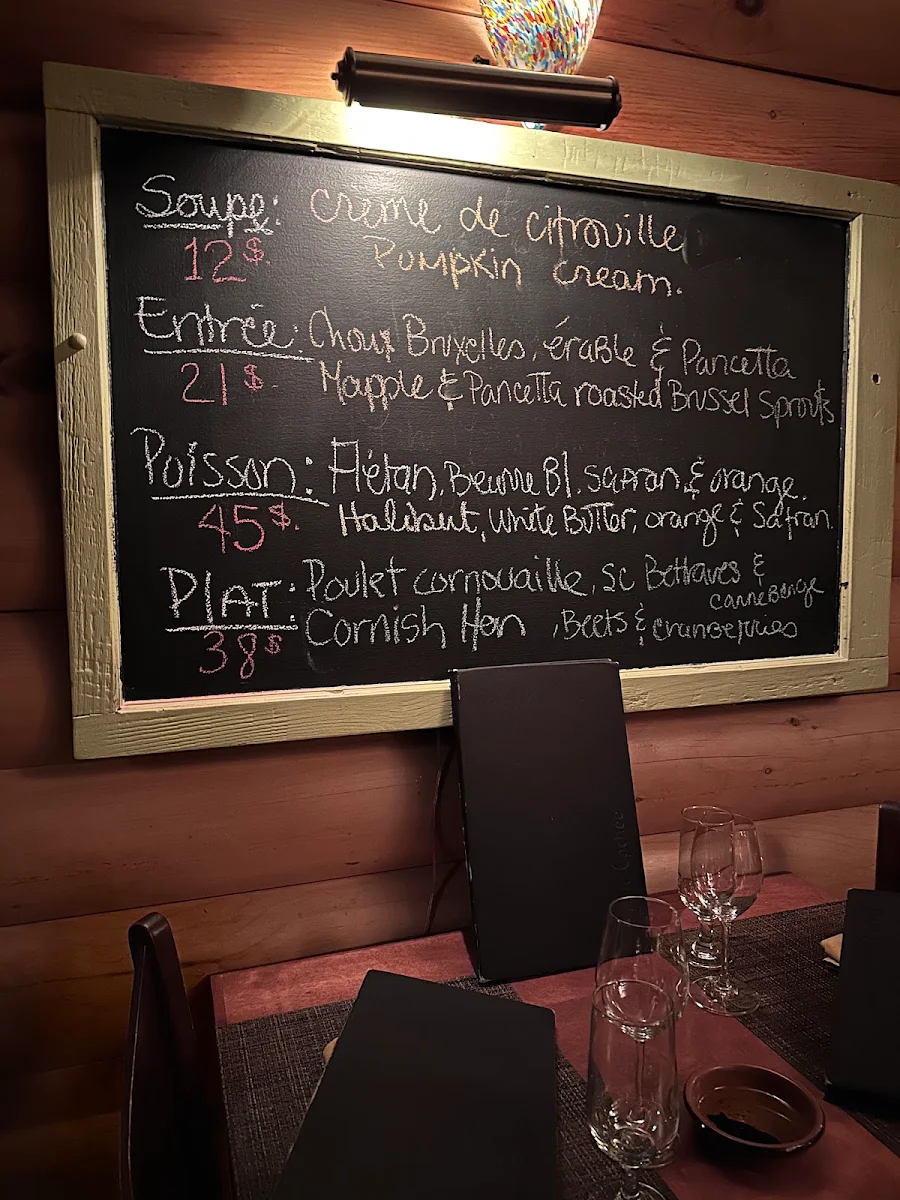 Soupe: Crème de citrouille
12$ Pumpkin cream.
Entrée: Choux Bruxelles, éraBle & Pancetta
21$ Mapple & Pancetta roasted Brussel Sprouts
Poisson: Flétan, Beurre Bl, Safran & orange.
45$. Halibut, White Butter, orange & Safran.
PLAT: Poulet cornouaille, sc Bettraves &
canneberge
38$ Cornish Hen, Beets & cranberries